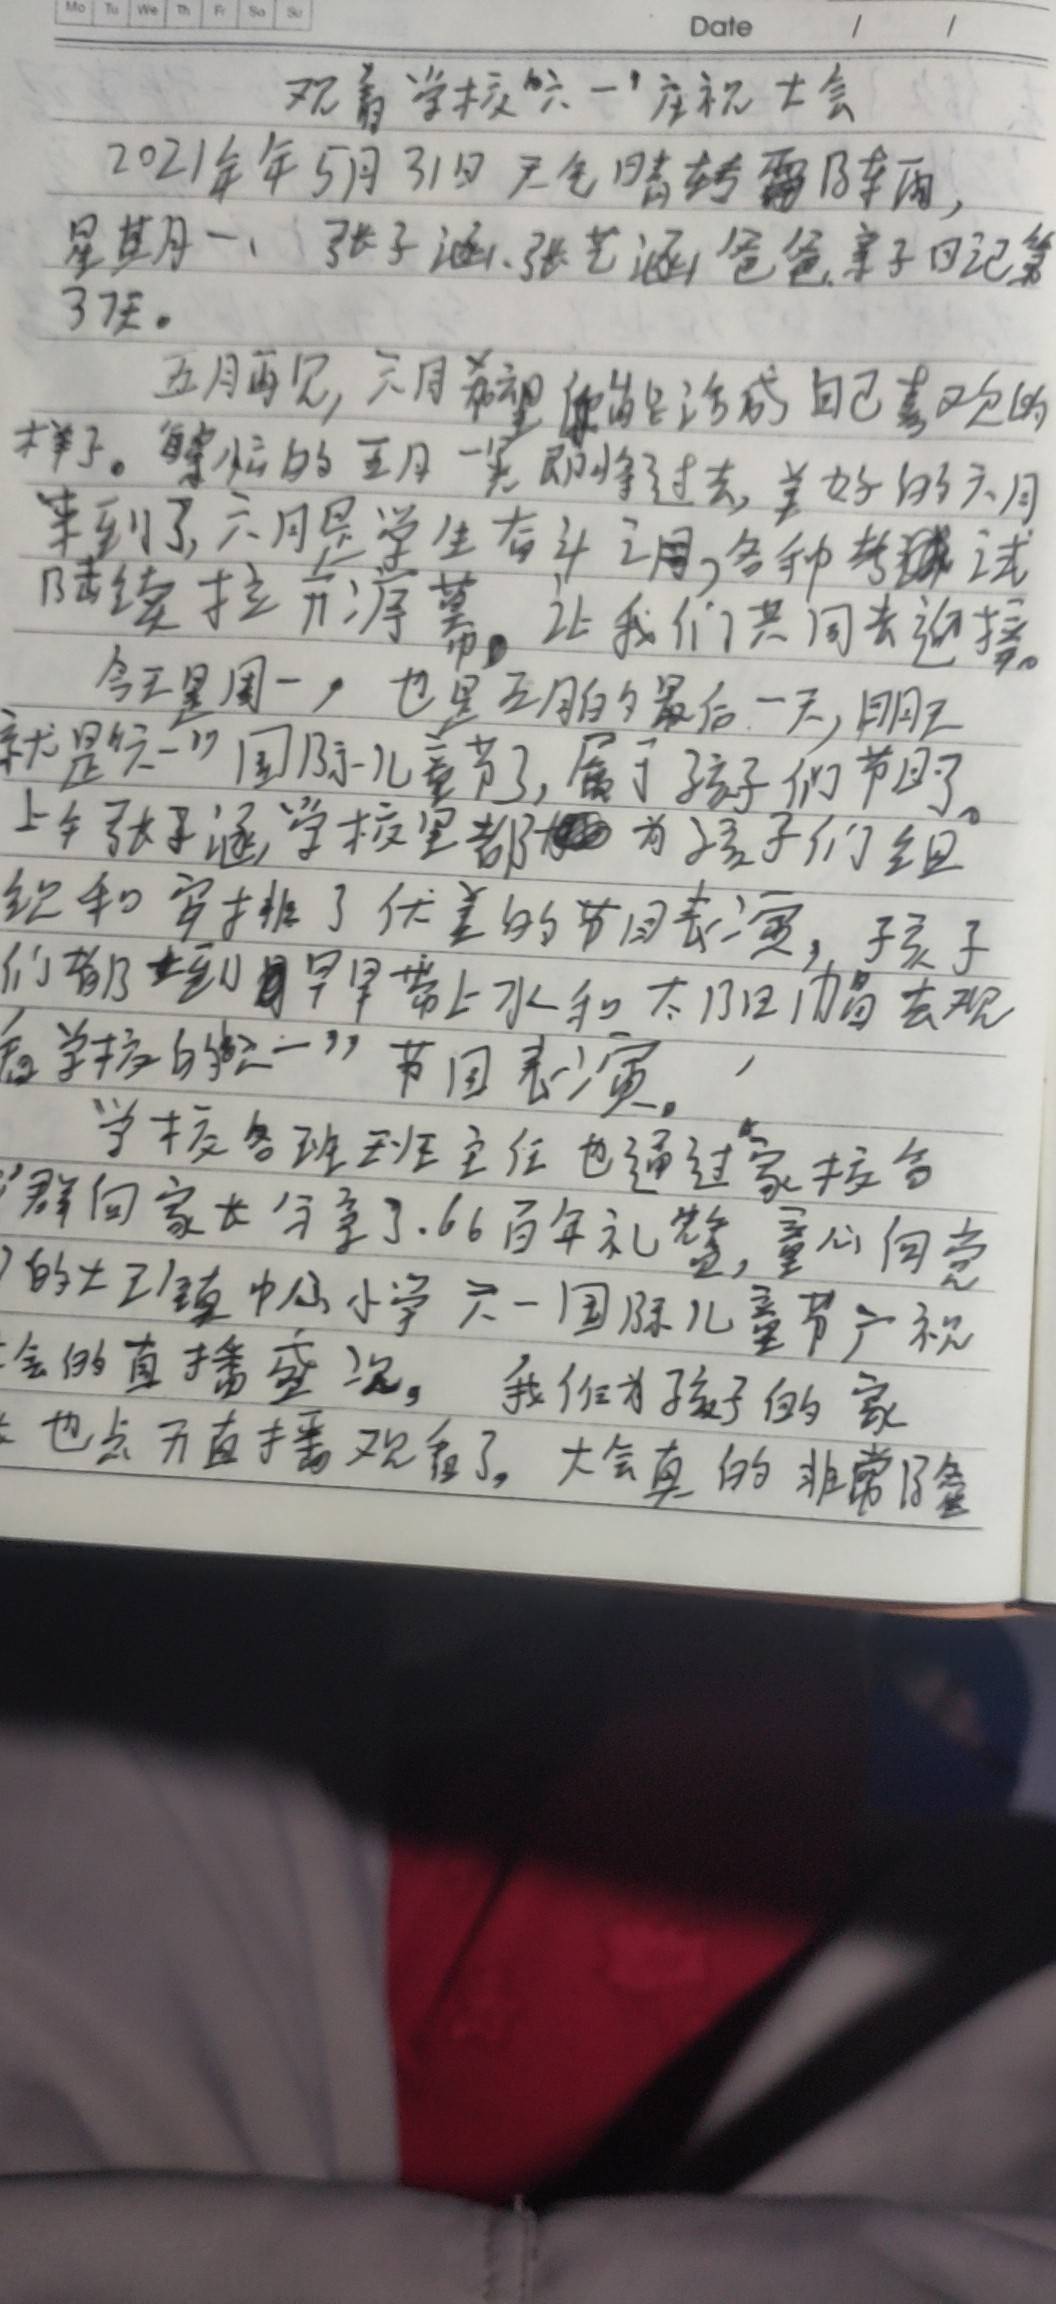 Mo Tu We Th Fr Sa Su
Date / /
观看学校“六一”庆祝大会
2021年年5月31日 天气晴转雷阵雨,
星期一、张子涵、张艺涵爸爸亲子日记第
37天。
五月再见,六月希望你能活成自己喜欢的
样子。繁忙的五月一晃即将过去,美好的六月
来到了,六月是学生奋斗之月,各种考试
陆续拉开序幕。让我们共同去迎接。
今天是周一,也是五月的最后一天,明天
就是“六一”国际儿童节了,属于孩子们节日了。
上午张子涵学校里都 为孩子们组
织和安排了优美的节目表演,孩子
们都 早早带上水和太阳帽去观
看学校的“六一”节目表演。
学校各班班主任也通过“家校合
”群向家长分享了.“百年礼赞,童心向党
”的大王镇中心小学六一国际儿童节庆祝
会的直播盛况。我作为孩子的家
长也点开直播观看了。大会真的非常隆